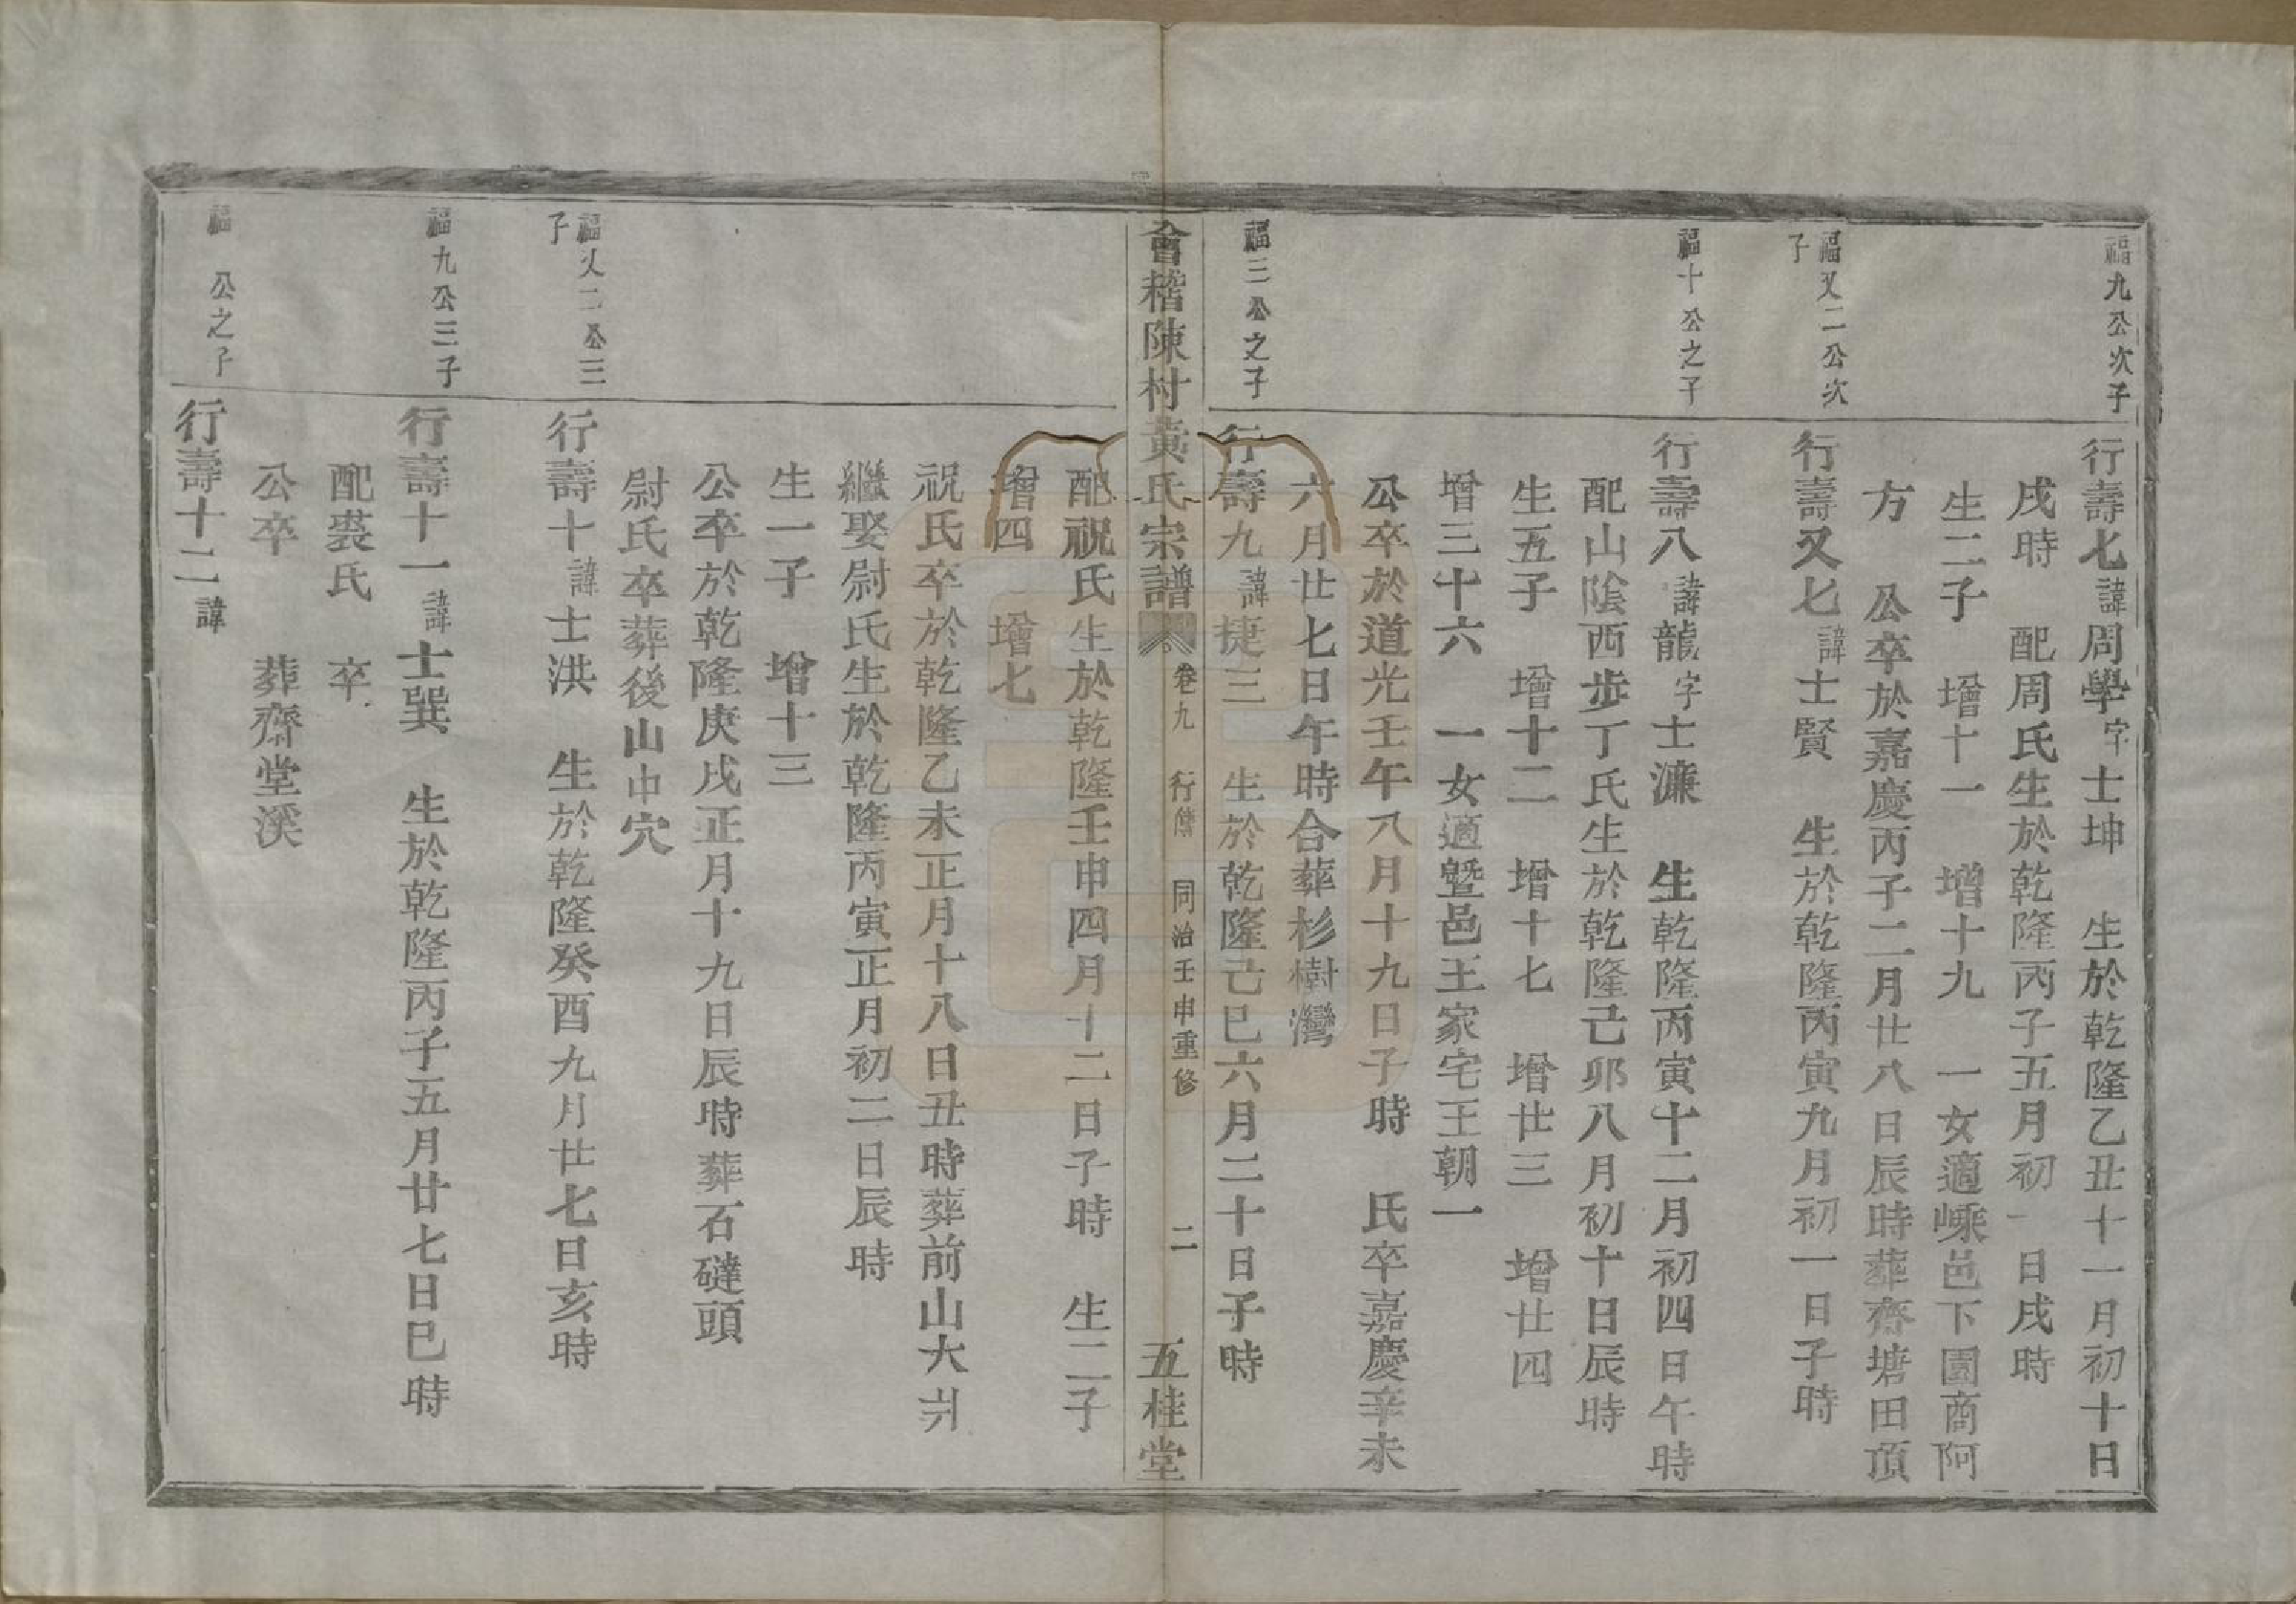 福九公次子
行壽七諱周學字士坤　生於乾隆乙丑十一月初十日
戌時　配周氏生於乾隆丙子五月初一日戌時
生二子　增十一　增十九　一女適嵊邑下園商阿
方　公卒於嘉慶丙子二月廿八日辰時葬齋塘田頂
福又二公次子
行壽又七諱士賢　生於乾隆丙寅九月初一日子時
福十公之子
行壽八諱龍字士濂　生乾隆丙寅十二月初四日午時
配山陰西步丁氏生於乾隆己卯八月初十日辰時
生五子　增十二　增十七　增廿三　增廿四
增三十六　一女適暨邑王家宅王朝一
公卒於道光壬午八月十九日子時　氏卒嘉慶辛未
六月廿七日午時合葬杉樹灣
福三公之子
行壽九諱捷三　生於乾隆己巳六月二十日子時
會稽陳村黃氏宗譜　卷九　行傳　同治壬申重修　二　五桂堂
配祝氏生於乾隆壬申四月十二日子時　生二子
增四　增七
祝氏卒於乾隆乙未正月十八日丑時葬前山大爿
繼娶尉氏生於乾隆丙寅正月初二日辰時
生一子　增十三
公卒於乾隆庚戌正月十九日辰時葬石磋頭
尉氏卒葬後山中穴
福又二公三子
行壽十諱士洪　生於乾隆癸酉九月廿七日亥時
福九公三子
行壽十一諱士巽　生於乾隆丙子五月廿七日巳時
配裘氏　卒
公卒　葬齋堂溪
福　公之子
行壽十二諱